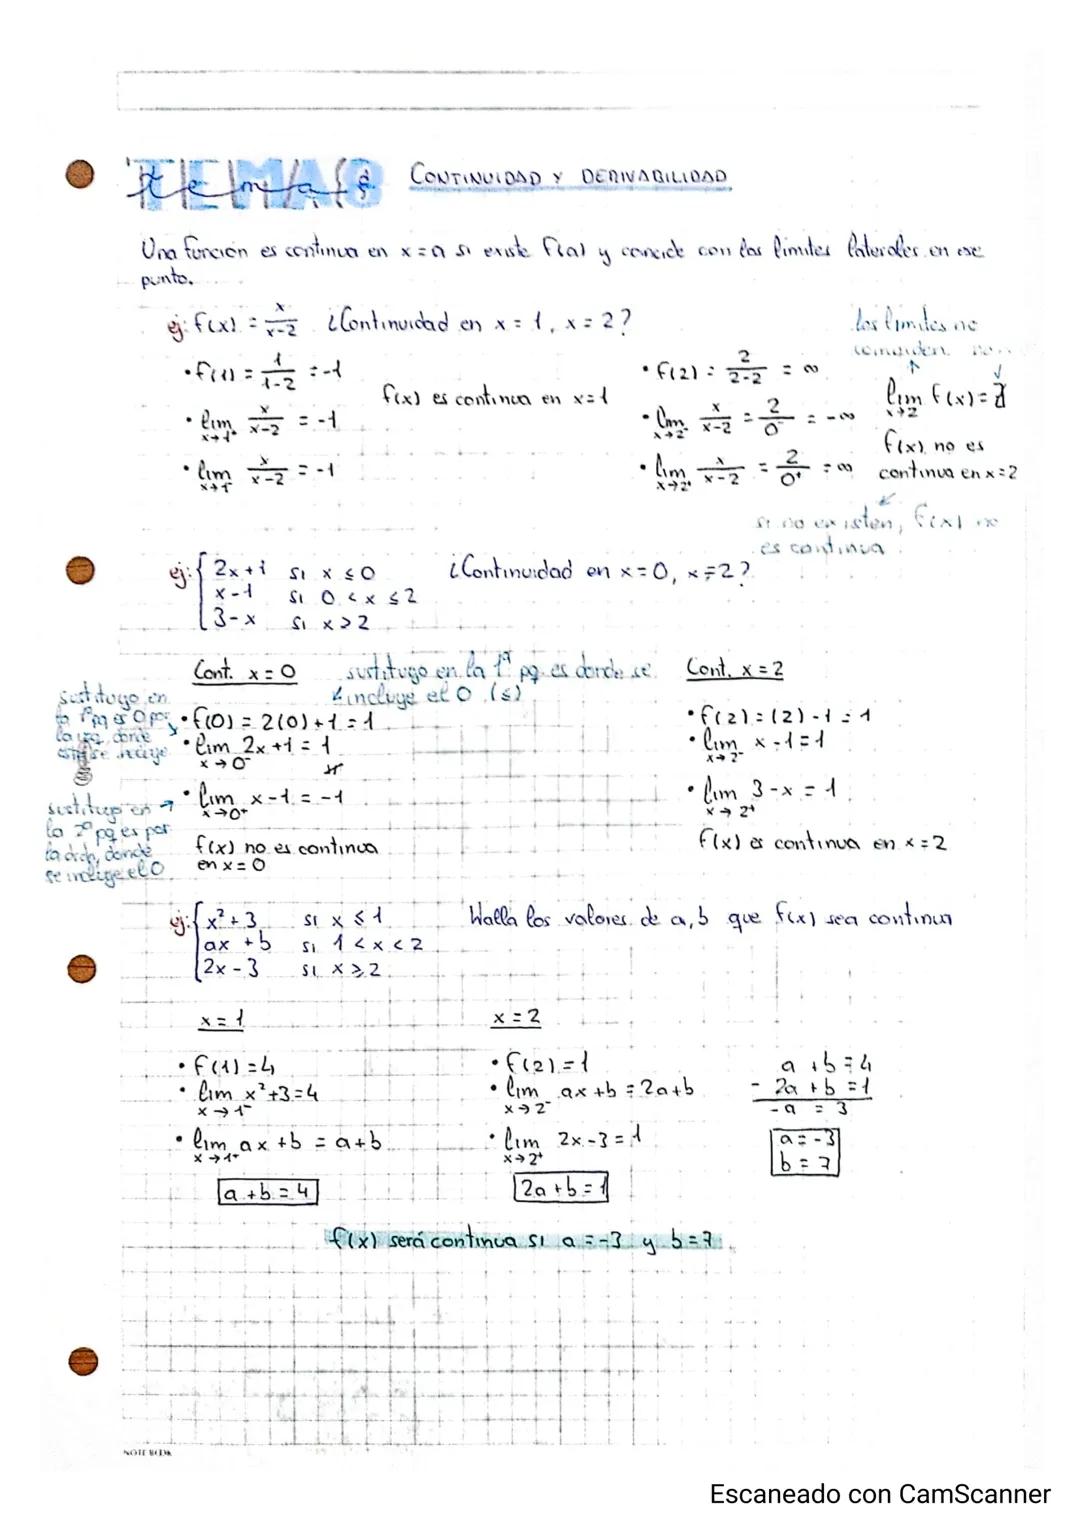 TEMA 8 CONTINUIDAD Y DERIVABILIDAD
Una función es continua en x=a si existe f(a) y coincide con los límites laterales en ese
punto.
ej: f(x) = x/(x-2) ¿Continuidad en x=1, x=2?
• f(1) = 1/(1-2) = -1
• lim x→1⁺ x/(x-2) = -1
• lim x→1⁻ x/(x-2) = -1
f(x) es continua en x=1
• f(2) = 2/(2-2) = ∞
• lim x→2⁻ x/(x-2) = 2/0⁻ = -∞
• lim x→2⁺ x/(x-2) = 2/0⁺ = ∞
los límites no
coinciden
lim x→2 f(x) = ∄
f(x) no es
continua en x=2
si no existen, f(x) no
es continua
ej: { 2x+1 si x ≤ 0
x-1 si 0 < x ≤ 2
3-x si x > 2
¿Continuidad en x=0, x=2?
Cont. x=0
sustituyo en la 1ª pq es donde se
incluye el 0 (≤)
• f(0) = 2(0)+1 = 1
• lim x→0⁻ 2x+1 = 1
• lim x→0⁺ x-1 = -1
f(x) no es continua
en x=0
sustituyo en
la 1ª pq es 0 por
la izq, donde
se incluye
sustituyo en →
la 2ª pq es por
la drch, donde
se incluye el 0
Cont. x=2
• f(2) = (2)-1 = 1
• lim x→2⁻ x-1 = 1
• lim x→2⁺ 3-x = 1
f(x) es continua en x=2
ej: { x²+3 si x ≤ 1
ax+b si 1 < x < 2
2x-3 si x ≥ 2
Halla los valores de a, b que f(x) sea continua
x=1
• f(1) = 4
• lim x→1⁻ x²+3 = 4
• lim x→1⁺ ax+b = a+b
a+b = 4
x=2
• f(2) = 1
• lim x→2⁻ ax+b = 2a+b
• lim x→2⁺ 2x-3 = 1
2a+b = 1
a+b = 4
- 2a+b = 1
-a = 3
a = -3
b = 7
f(x) será continua si a=-3 y b=7.
NOTE BOOK
Escaneado con CamScanner